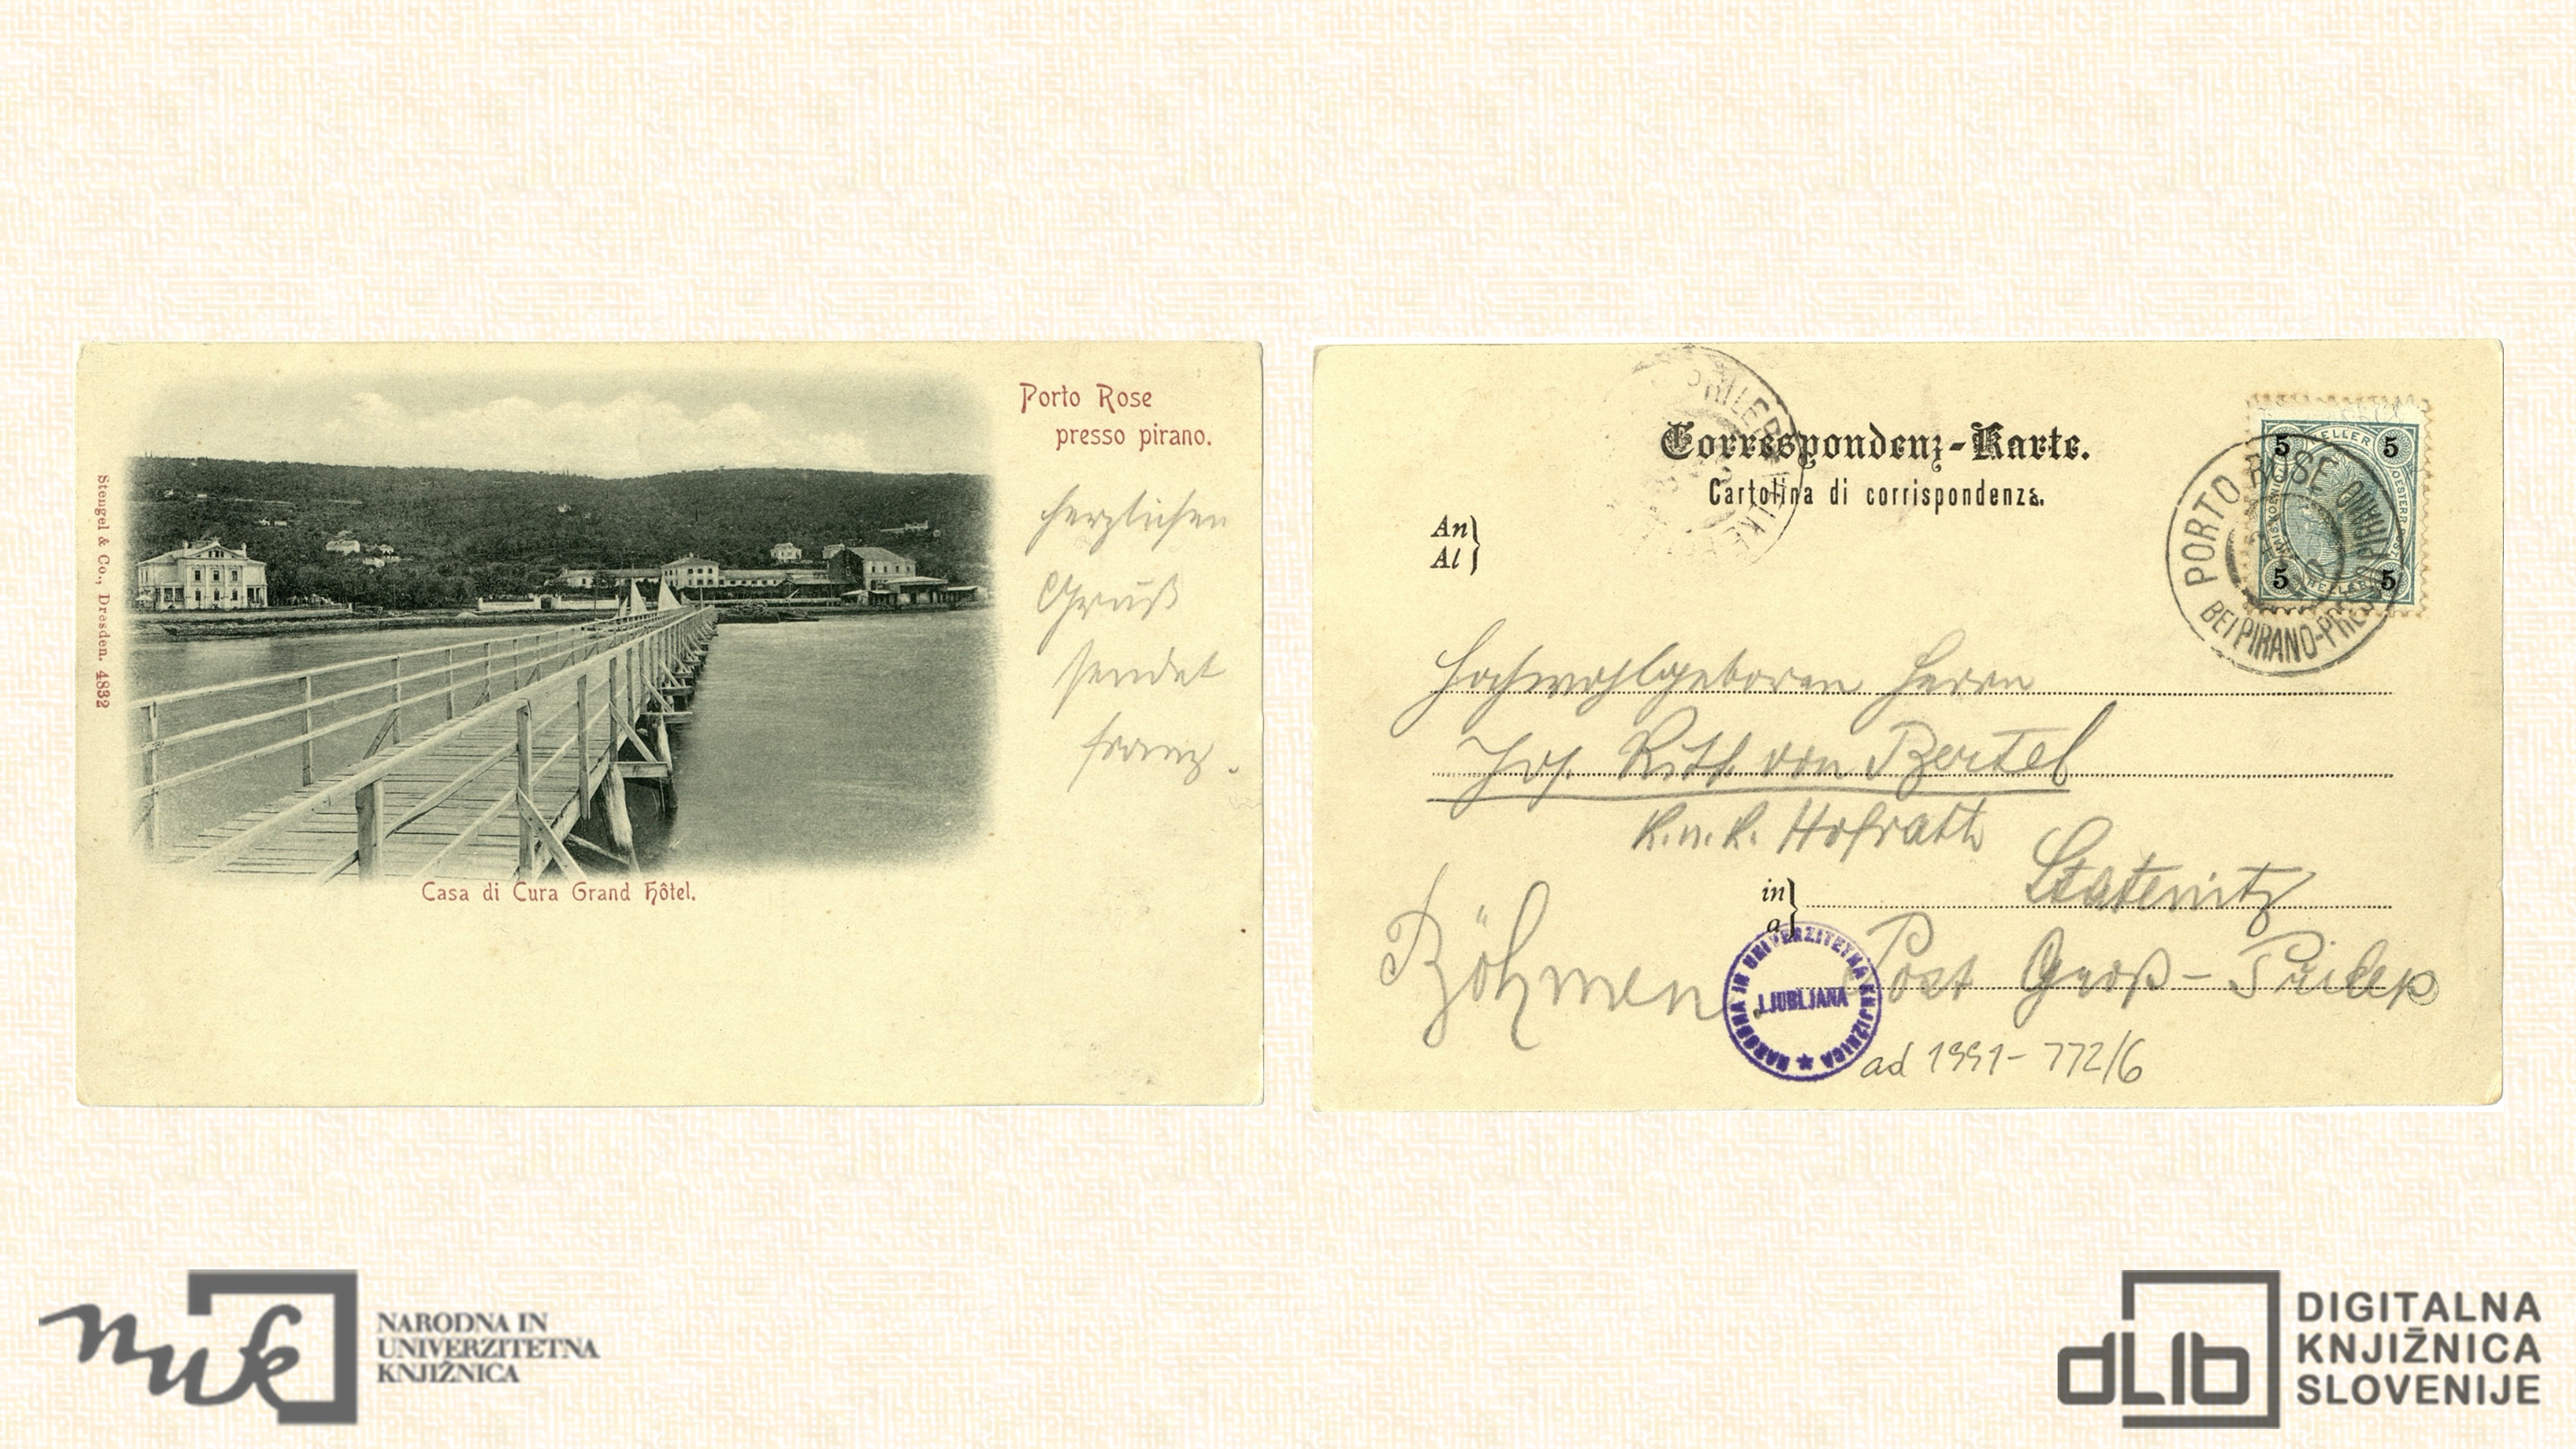 Porto Rose
presso pirano.
herzlichen
Gruß
sendet
Franz.
Stengel & Co., Dresden. 4832
Casa di Cura Grand Hôtel.
Correspondenz-Karte.
Cartolina di corrispondenza.
An
Al
5 5
5 5
PORTO ROSE
BEI PIRANO-PRESSO PIRANO
Hochwohlgeboren Herrn
Jos. Ritt. von Bertel
k. u. k. Hofrath
in
a
Statenitz
Böhmen. Post Groß-Přilep
NARODNA IN UNIVERZITETNA KNJIŽNICA
LJUBLJANA
ad 1991-772/6
nuk
NARODNA IN
UNIVERZITETNA
KNJIŽNICA
dLib
DIGITALNA
KNJIŽNICA
SLOVENIJE